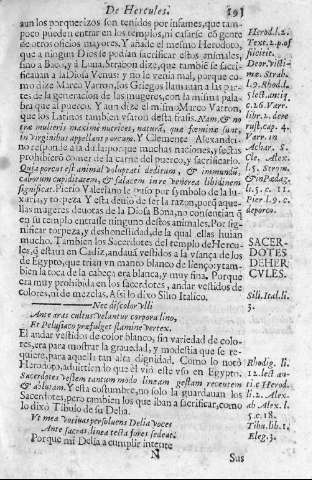 De Hercules. 191
aun los porquerizos son tenidos por infames, que tam-
poco pueden entrar en los templos, ni casarse cō gente
de otros oficios mayores. Y añade el mesmo Herodoto,
que a ningunos Dioses se podian sacrificar estos animales,
sino a Baco, y à Luna. Strabon dize, que tambiē se sacri-
ficauan a la Diosa Venus: y no le venia mal, porque co-
mo dize Marco Varron, los Griegos llamauan a las par-
tes de la generacion de las mugeres, con la misma pala-
bra que al puerco. Y aun dize el mismo Marco Varron,
que los Latinos tambien vsaron desta frasis. Nam, & no
træ mulieres maximè nutrices, naturā, quæ fœminæ sunt,
in virginibus appellant porcum. Y Clemente Alexandri-
no responde a la duda, porque muchas naciones, y sectas
prohibierō comer de la carne del puerco, y sacrificarlo.
Quia porcus est animal voluptati deditum, & immundū.
Carnium cupiditatem, & salacem in re venerea libidinem
significat. Pierio Valeriano le puso por symbolo de la lu-
xuria, y torpeza. Y esta deuio de ser la razon, porq̄ aque-
llas mugeres, deuotas de la Diosa Bona, no consentian q̄
en su templo entrasse ninguno destos animales. Por sig-
nificar torpeza, y deshonestidad, de la qual ellas huian
mucho. Tambien los Sacerdotes del templo de Hercu-
les, q̄ estaua en Caliz, andauā vestidos a la vsança de los
de Egypto, que traian vn manto blanco de lienço; y tam-
bien la toca de la cabeça era blanca, y muy fina. Porque
era muy prohibida en los sacerdotes, andar vestidos de
colores, ni de mezclas. Assi lo dixo Silio Italico.
Nec discolor vlli
Ante aras cultus: velantur corpora lino,
Et Pelusiaco præfulget stamine vertex.
El andar vestidos de color blanco, sin variedad de colo-
res, era para mostrar la grauedad, y modestia que se re-
quiere, para aquella tan alta dignidad. Como lo notò
Herodoto, aduirtiendo que el viò este vso en Egypto.
Sacerdotes vestem tantum modo lineam gestam recentem
& ablutam. Y esta costumbre, no solo la guardauan los
Sacerdotes, pero tambien los que iban a sacrificar, como
lo dixo Tibulo de su Delia.
Vt mea votiuas persoluens Delia voces
Ante sacras linea tecta fores sedeat.
Porque mi Delia a cumplir intente
N Sus
Herod. l. 2.
Text. 2. p. of
ficiscit.
Deor. victi-
mæ. Strab.
l. 9. Rhod. l.
8. lect. antiq.
c. 16. Varr.
libr. 2. de re
rust. cap. 4.
Varr. in
Achar. S.
Cle. Alex.
l. 5. Strom.
Pier. l. 9. c.
de porco.
SACER-
DOTES
DE HER-
CVLES.
Sili. Ital. li.
3.
Rhodig. li.
12. lect. an-
ti e Herod.
li. 2. Alex.
ab Alex. l.
5. c. 18.
Tibu. lib. 1.
Eleg. 3.